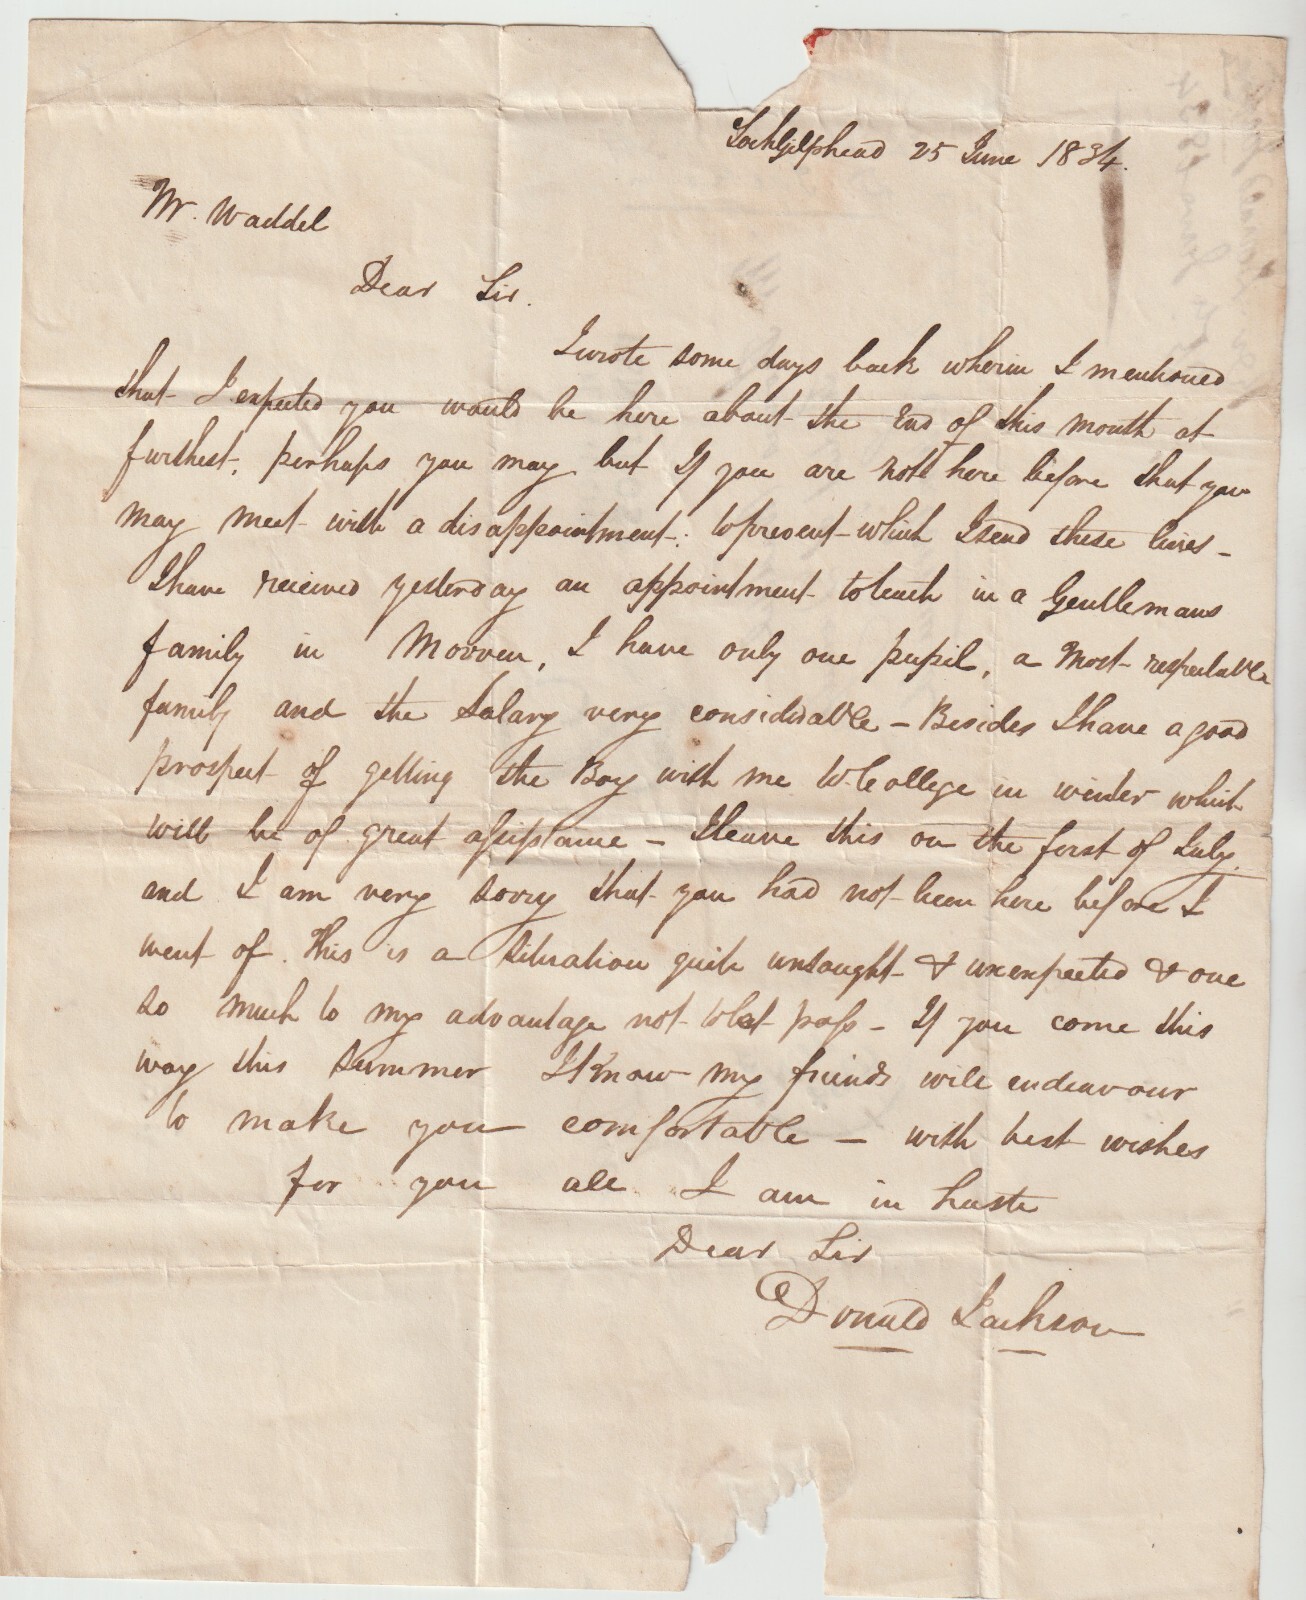 LochGilphead 25 June 1834.
Mr. Waddel
Dear Sir.
I wrote some days back wherin I mentioned
that I expected you would be here about the End of this month at
furthest, perhaps you may but If you are not here before that you
may meet with a disappointment: to prevent which I send these lines -
I have received yesterday an appointment to teach in a Gentlemans
family in Morven, I have only one pupil, a Most respectable
family and the Salary very considerable - Besides I have a good
prospect of getting the Boy with me to College in winter which
will be of great assistance - I leave this on the first of July.
and I am very sorry that you had not been here before I
went of. This is a situation quite unsought & unexpected & one
so much to my advantage not to let pass - If you come this
way this Summer I know my friends will endeavour
to make you comfortable - with best wishes
for you all I am in haste
Dear Sir
Donald Jackson